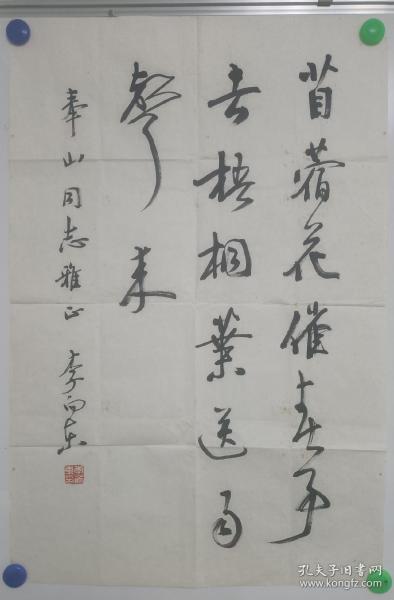 苜蓿花催春事
去梧桐葉送雨
聲来
奉山同志雅正 李向东
孔夫子旧书网
www.kongfz.com